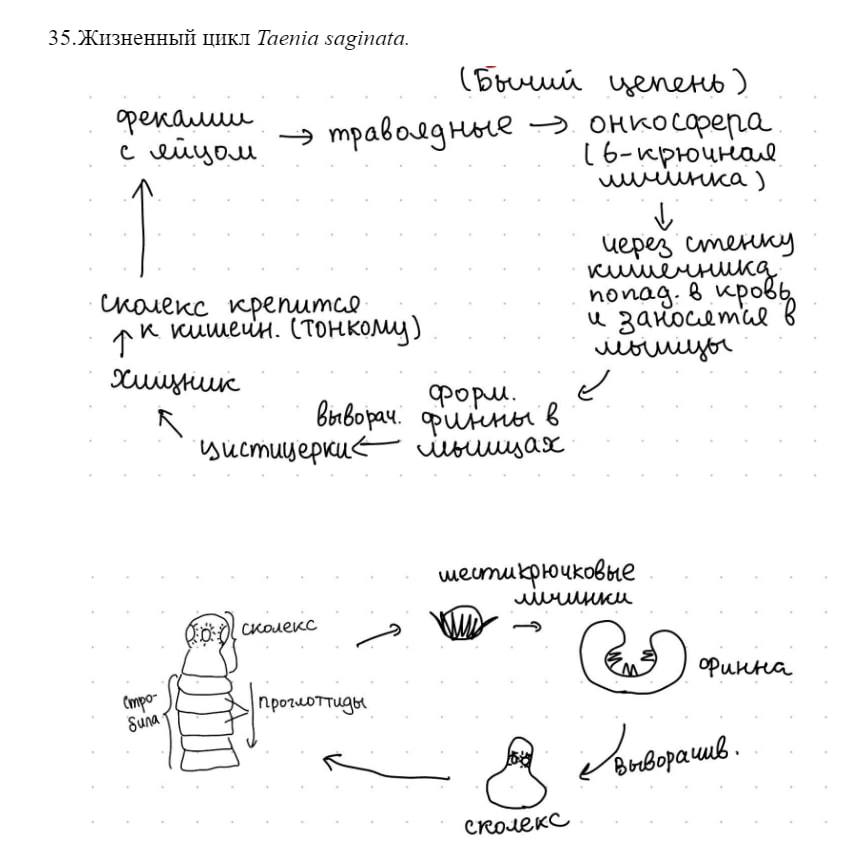 35.Жизненный цикл Taenia saginata.
(Бычий цепень)
фекалии
с яйцом
→ травоядные →
онкосфера
(6-крючная
личинка)
через стенку
кишечника
попад. в кровь
и заносятся в
мышцы
форм.
финны в
мышцах
выворач.
цистицерки
хищник
сколекс крепится
к кишечн. (тонкому)
шестикрючковые
личинки
сколекс
финна
стро-
била
проглоттиды
выворачив.
сколекс